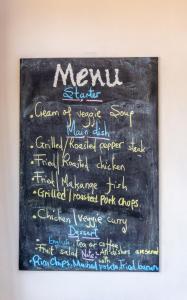 Menu
Starter
• Cream of veggie Soup
Main dish
• Grilled/Roasted pepper steak
• Fried/Roasted chicken
Fried Makange fish
• Grilled/roasted Pork chops
• Chicken/veggie curry
Dessert
English Tea or coffee
• Fruit Salad Note: All dishes are served
with
Rice, Chips, Mashed potato, fried banana